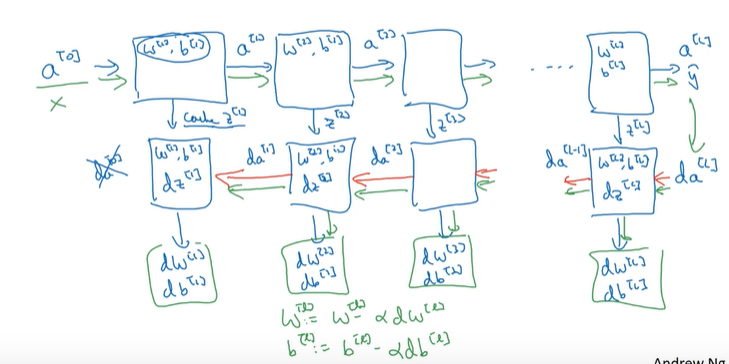 a^[0]
x
w^[1], b^[1]
a^[1]
w^[2], b^[1]
a^[2]
....
w^[L]
b^[L]
a^[L]
ŷ
cache z^[1]
z^[2]
z^[3]
z^[L]
da^[0]
w^[1], b^[1]
dz^[1]
da^[1]
w^[2], b^[2]
dz^[2]
da^[2]
da^[L-1]
w^[L], b^[L]
dz^[L]
da^[L]
dw^[1]
db^[1]
dw^[2]
db^[2]
dw^[3]
db^[3]
dw^[L]
db^[L]
w^[l] := w^[l] - αdw^[l]
b^[l] := b^[l] - αdb^[l]
Andrew Ng